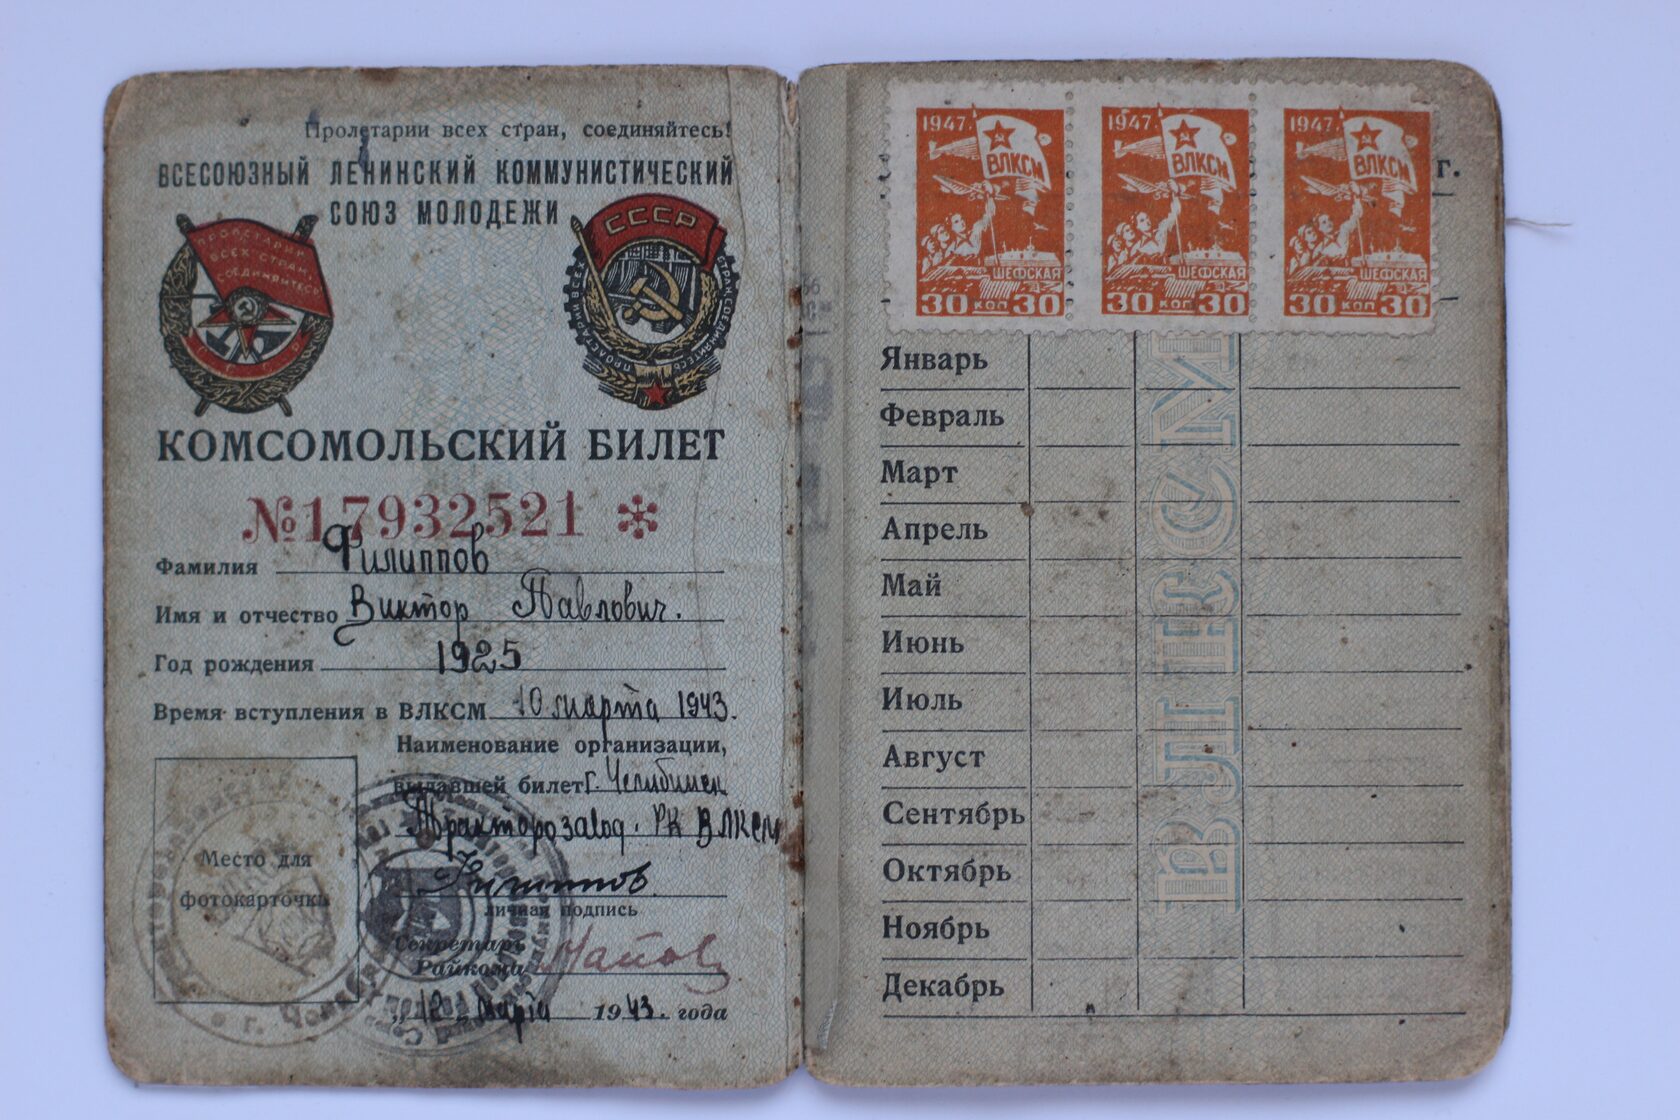 Пролетарии всех стран, соединяйтесь!
ВСЕСОЮЗНЫЙ ЛЕНИНСКИЙ КОММУНИСТИЧЕСКИЙ
СОЮЗ МОЛОДЕЖИ
ПРОЛЕТАРИИ
ВСЕХ СТРАН,
СОЕДИНЯЙТЕСЬ
СССР
КОМСОМОЛЬСКИЙ БИЛЕТ
№17932521 *
Фамилия Филиппов
Имя и отчество Виктор Павлович.
Год рождения 1925
Время вступления в ВЛКСМ 10 марта 1943.
Наименование организации,
выдавшей билет г. Челябинск
Тракторозавод. РК ВЛКСМ
Филиппов
личная подпись
Место для
фотокарточки
Секретарь
Райкома
„12„ марта 1943. года
1947. 1947. 1947.
ВЛКСМ ВЛКСМ ВЛКСМ
ШЕФСКАЯ ШЕФСКАЯ ШЕФСКАЯ
30 КОП 30 30 КОП 30 30 КОП 30
г.
Январь
Февраль
Март
Апрель
Май
Июнь
Июль
Август
Сентябрь
Октябрь
Ноябрь
Декабрь
ВЛКСМ